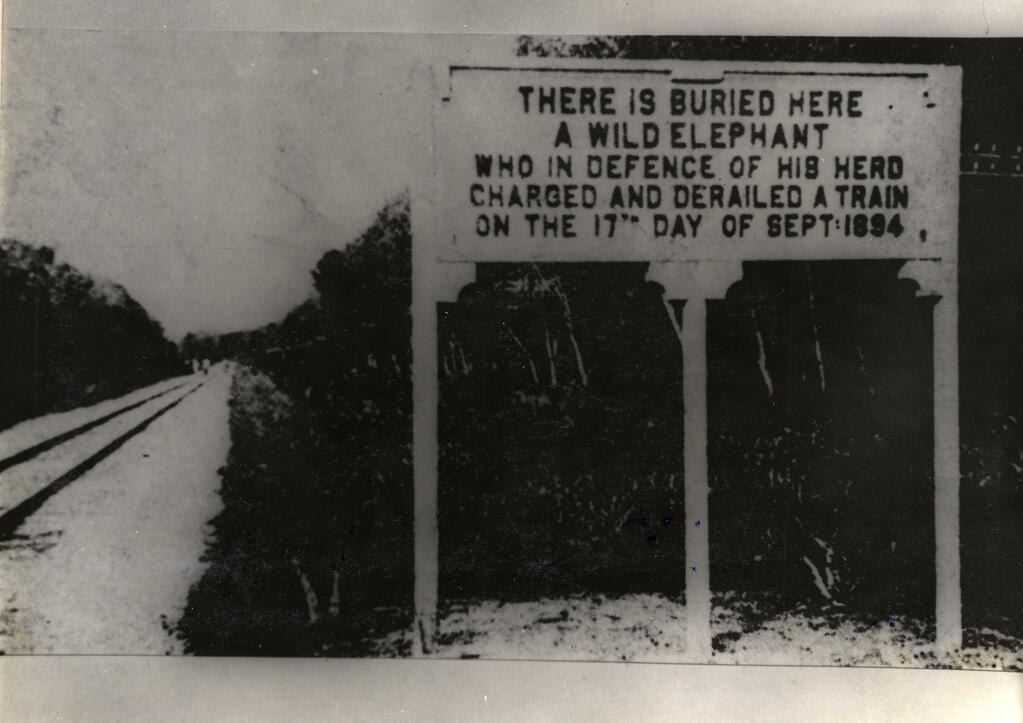 THERE IS BURIED HERE
A WILD ELEPHANT
WHO IN DEFENCE OF HIS HERD
CHARGED AND DERAILED A TRAIN
ON THE 17TH DAY OF SEPT: 1894